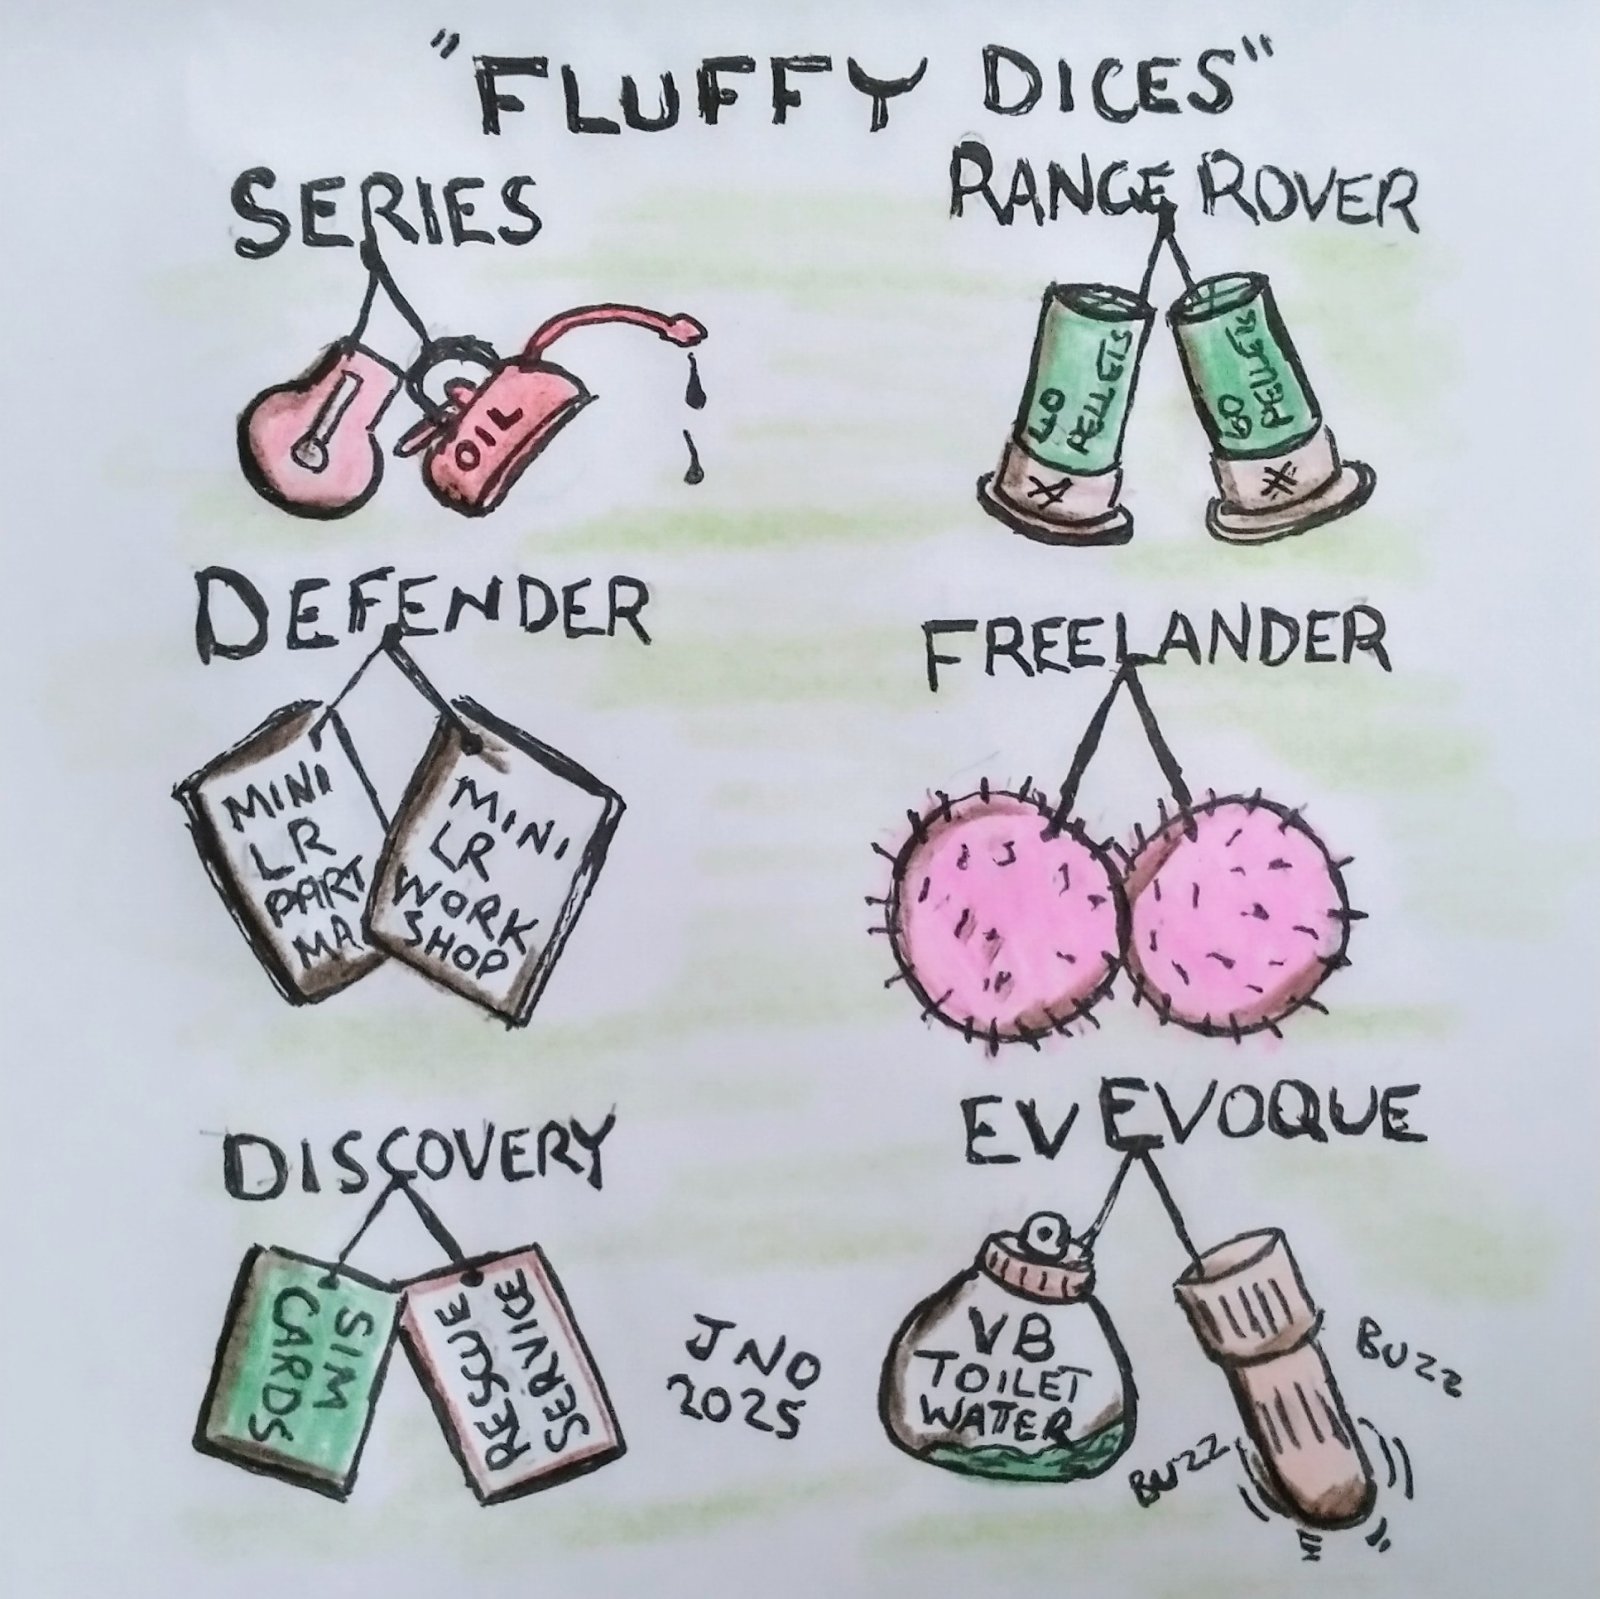 "FLUFFY DICES"
SERIES
OIL
RANGE ROVER
40
PELLETS
60
PELLETS
DEFENDER
MINI
LR
PART
MA
MINI
LR
WORK
SHOP
FREELANDER
DISCOVERY
SIM
CARDS
RESCUE
SERVICE
EV EVOQUE
VB
TOILET
WATTER
BUZZ
BUZZ
JNO
2025